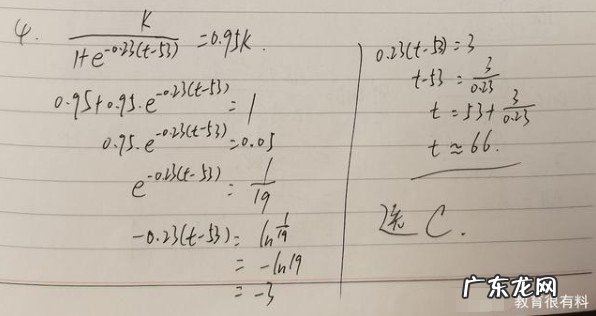 4. K/(1+e^-0.23(t-53)) = 0.95K.
0.95+0.95·e^-0.23(t-53) = 1
0.95·e^-0.23(t-53) = 0.05
e^-0.23(t-53) = 1/19
-0.23(t-53) = ln 1/19
= -ln19
= -3
0.23(t-53) = 3
t-53 = 3/0.23
t = 53+3/0.23
t≈66.
选 C.
广东龙网
教育很有料